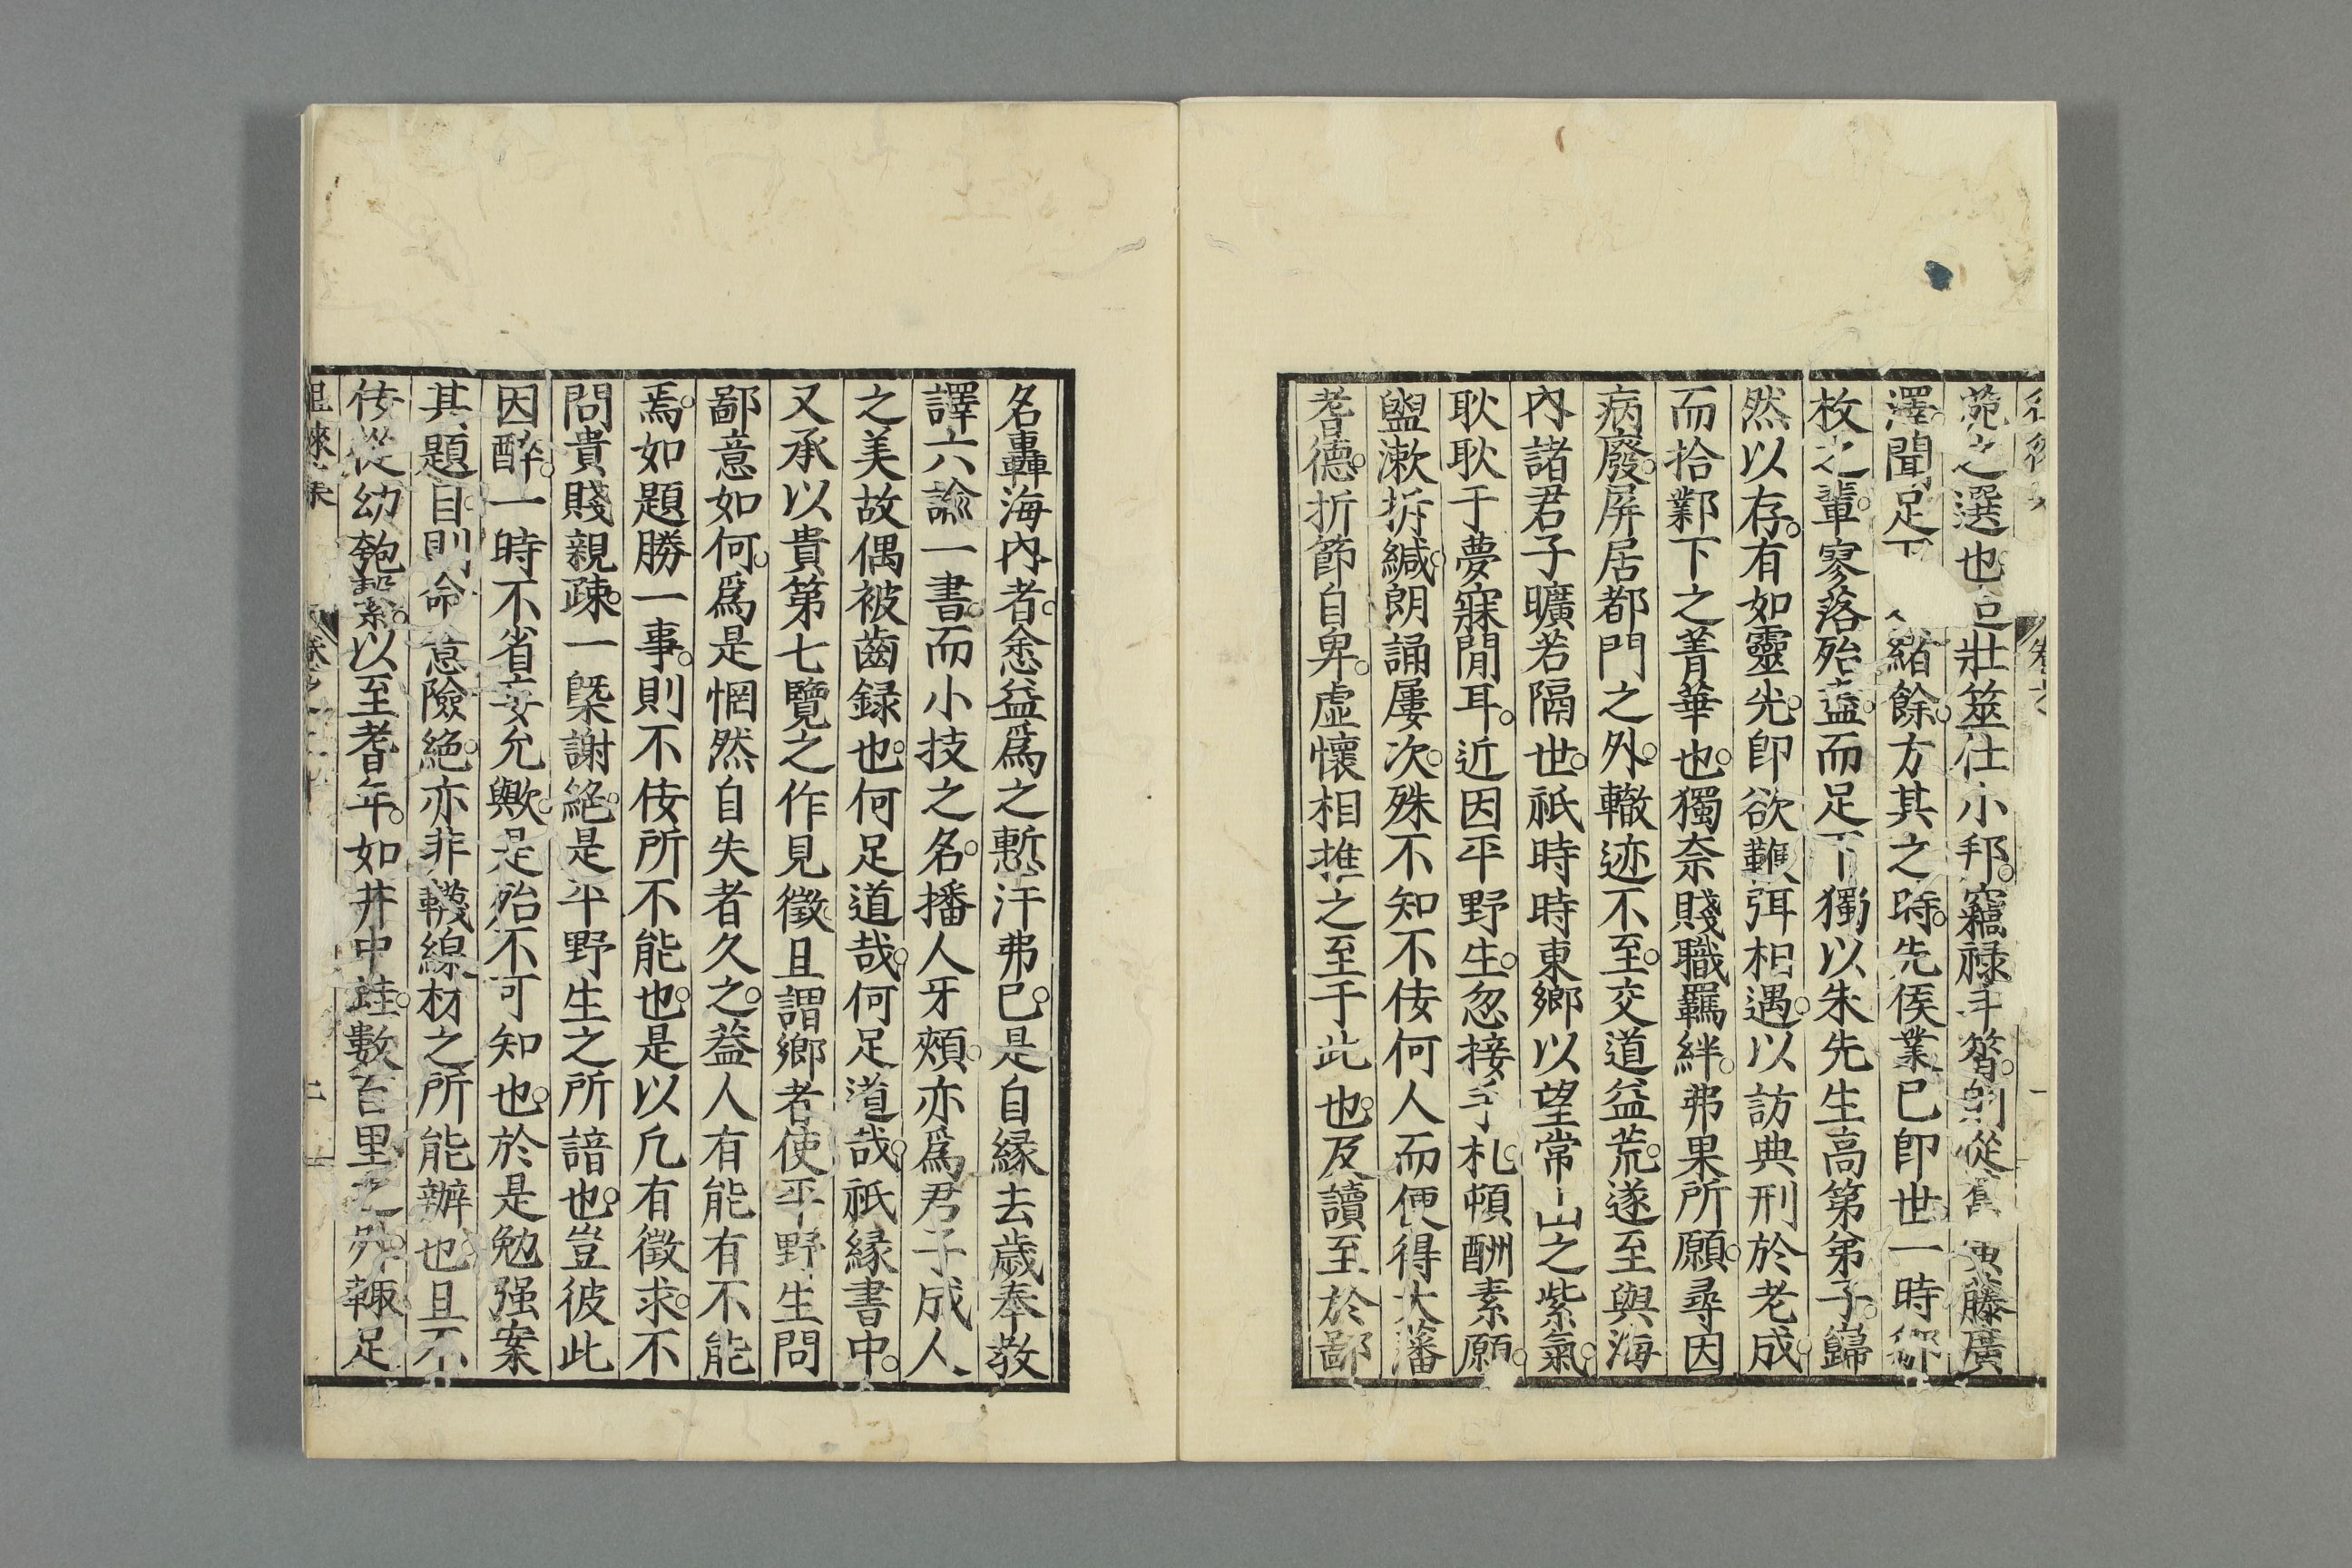 苑之選也 壯筮仕小邦。竊祿斗筲。則從 藤廣
澤。聞足下 緒餘。方其之時。先侯業已卽世。一時鄒
枚之輩。寥落殆盡。而足下獨以朱先生高第弟子。歸
然以存。有如靈光。卽欲鞭弭相遇。以訪典刑於老成。
而拾鄴下之菁華也。獨奈賤職羈絆。弗果所願。尋因
病廢。屏居都門之外。轍迹不至。交道益荒。遂至與海
內諸君子曠若隔世。祇時時東鄉以望常山之紫氣。
耿耿于夢寐間耳。近因平野生。忽接手札。頓酬素願。
盥漱拆緘。朗誦屢次。殊不知不佞何人而便得大藩
耆德。折節自卑。虛懷相推之至于此也。及讀至於鄙
名轟海內者。悆益爲之慙汗弗已。是自緣去歲奉教
譯六諭一書。而小技之名。播人牙頰。亦爲君子成人
之美故偶被齒録也。何足道哉。何足道哉。祇緣書中。
又承以貴第七覽之作見徵且謂鄉者使平野生問
鄙意如何。爲是惘然自失者久之。益人有能有不能
焉。如題勝一事。則不佞所不能也。是以凢有徵求。不
問貴賤親疎。一槩謝絕。是平野生之所諳也。豈彼此
因醉。一時不省妄允歟。是殆不可知也。於是勉强案
其題目。則命意險絕。亦非韈線材之所能辦也。且不
佞從幼匏繫。以至耆年。如井中蛙。數百里之外。輙足